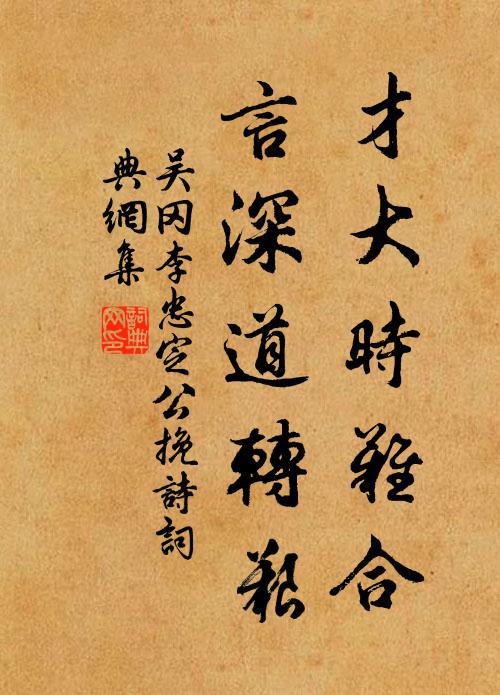 才大時難合
言深道轉艱
吴冈李忠定公挽詩詞
典網集
詞典網印